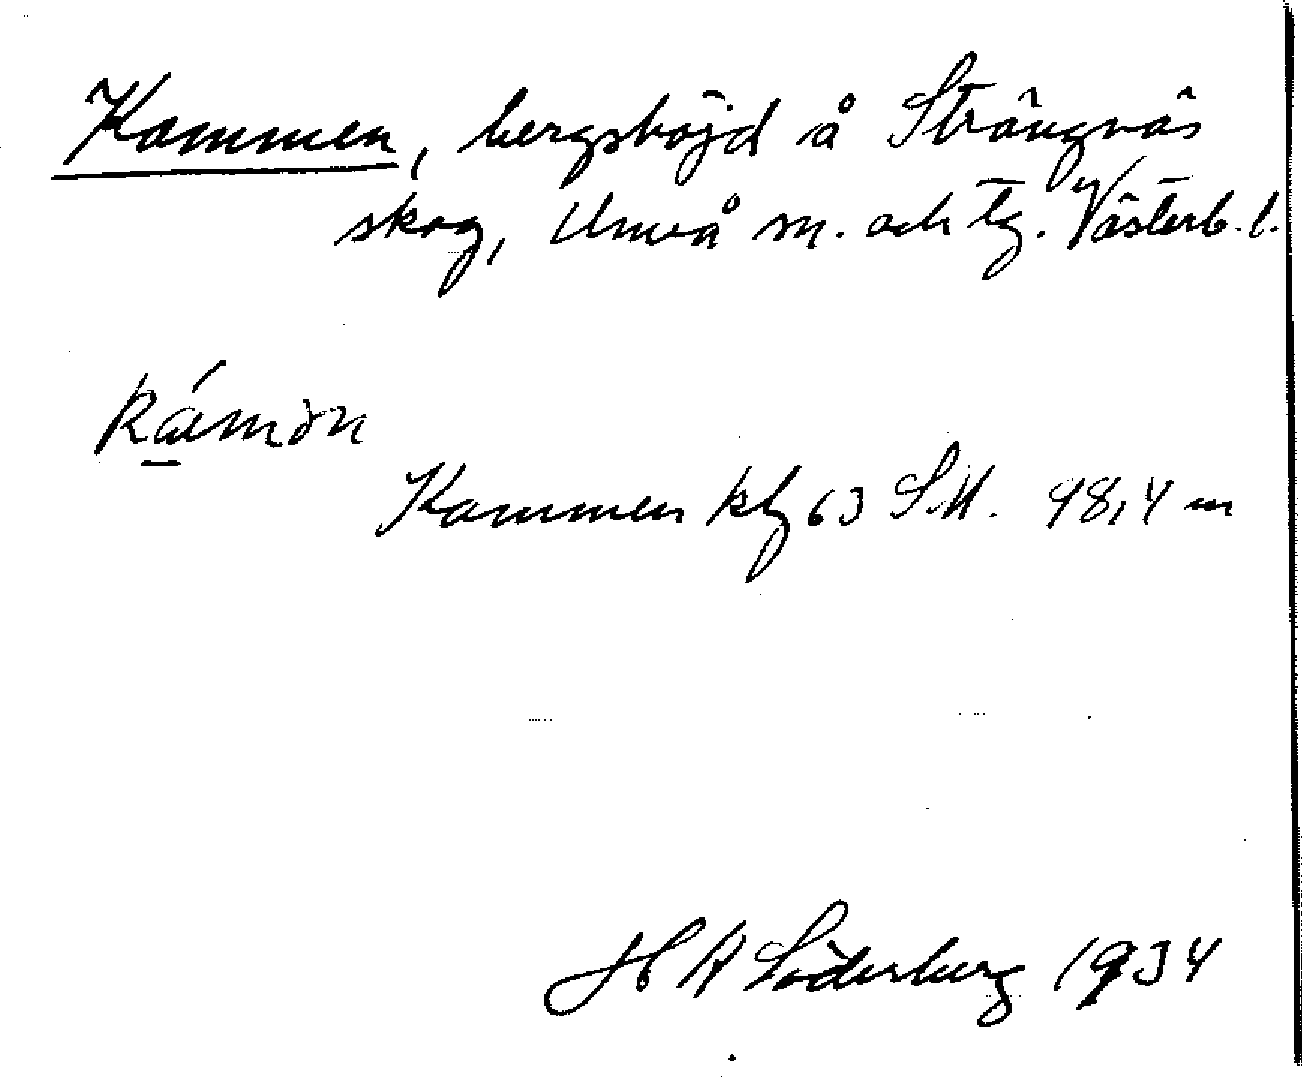 Kammen, bergshöjd å Strängnäs
skog, Umeå sn. och tg. Västerb. l.
kámən
Kammen kbl 63 S.V. 98,4 m
H A Söderberg 1934